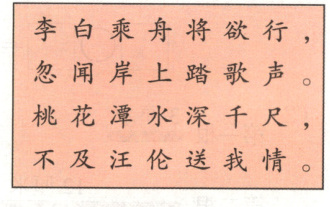 李白乘舟将欲行，
忽闻岸上踏歌声。
桃花潭水深千尺，
不及汪伦送我情。